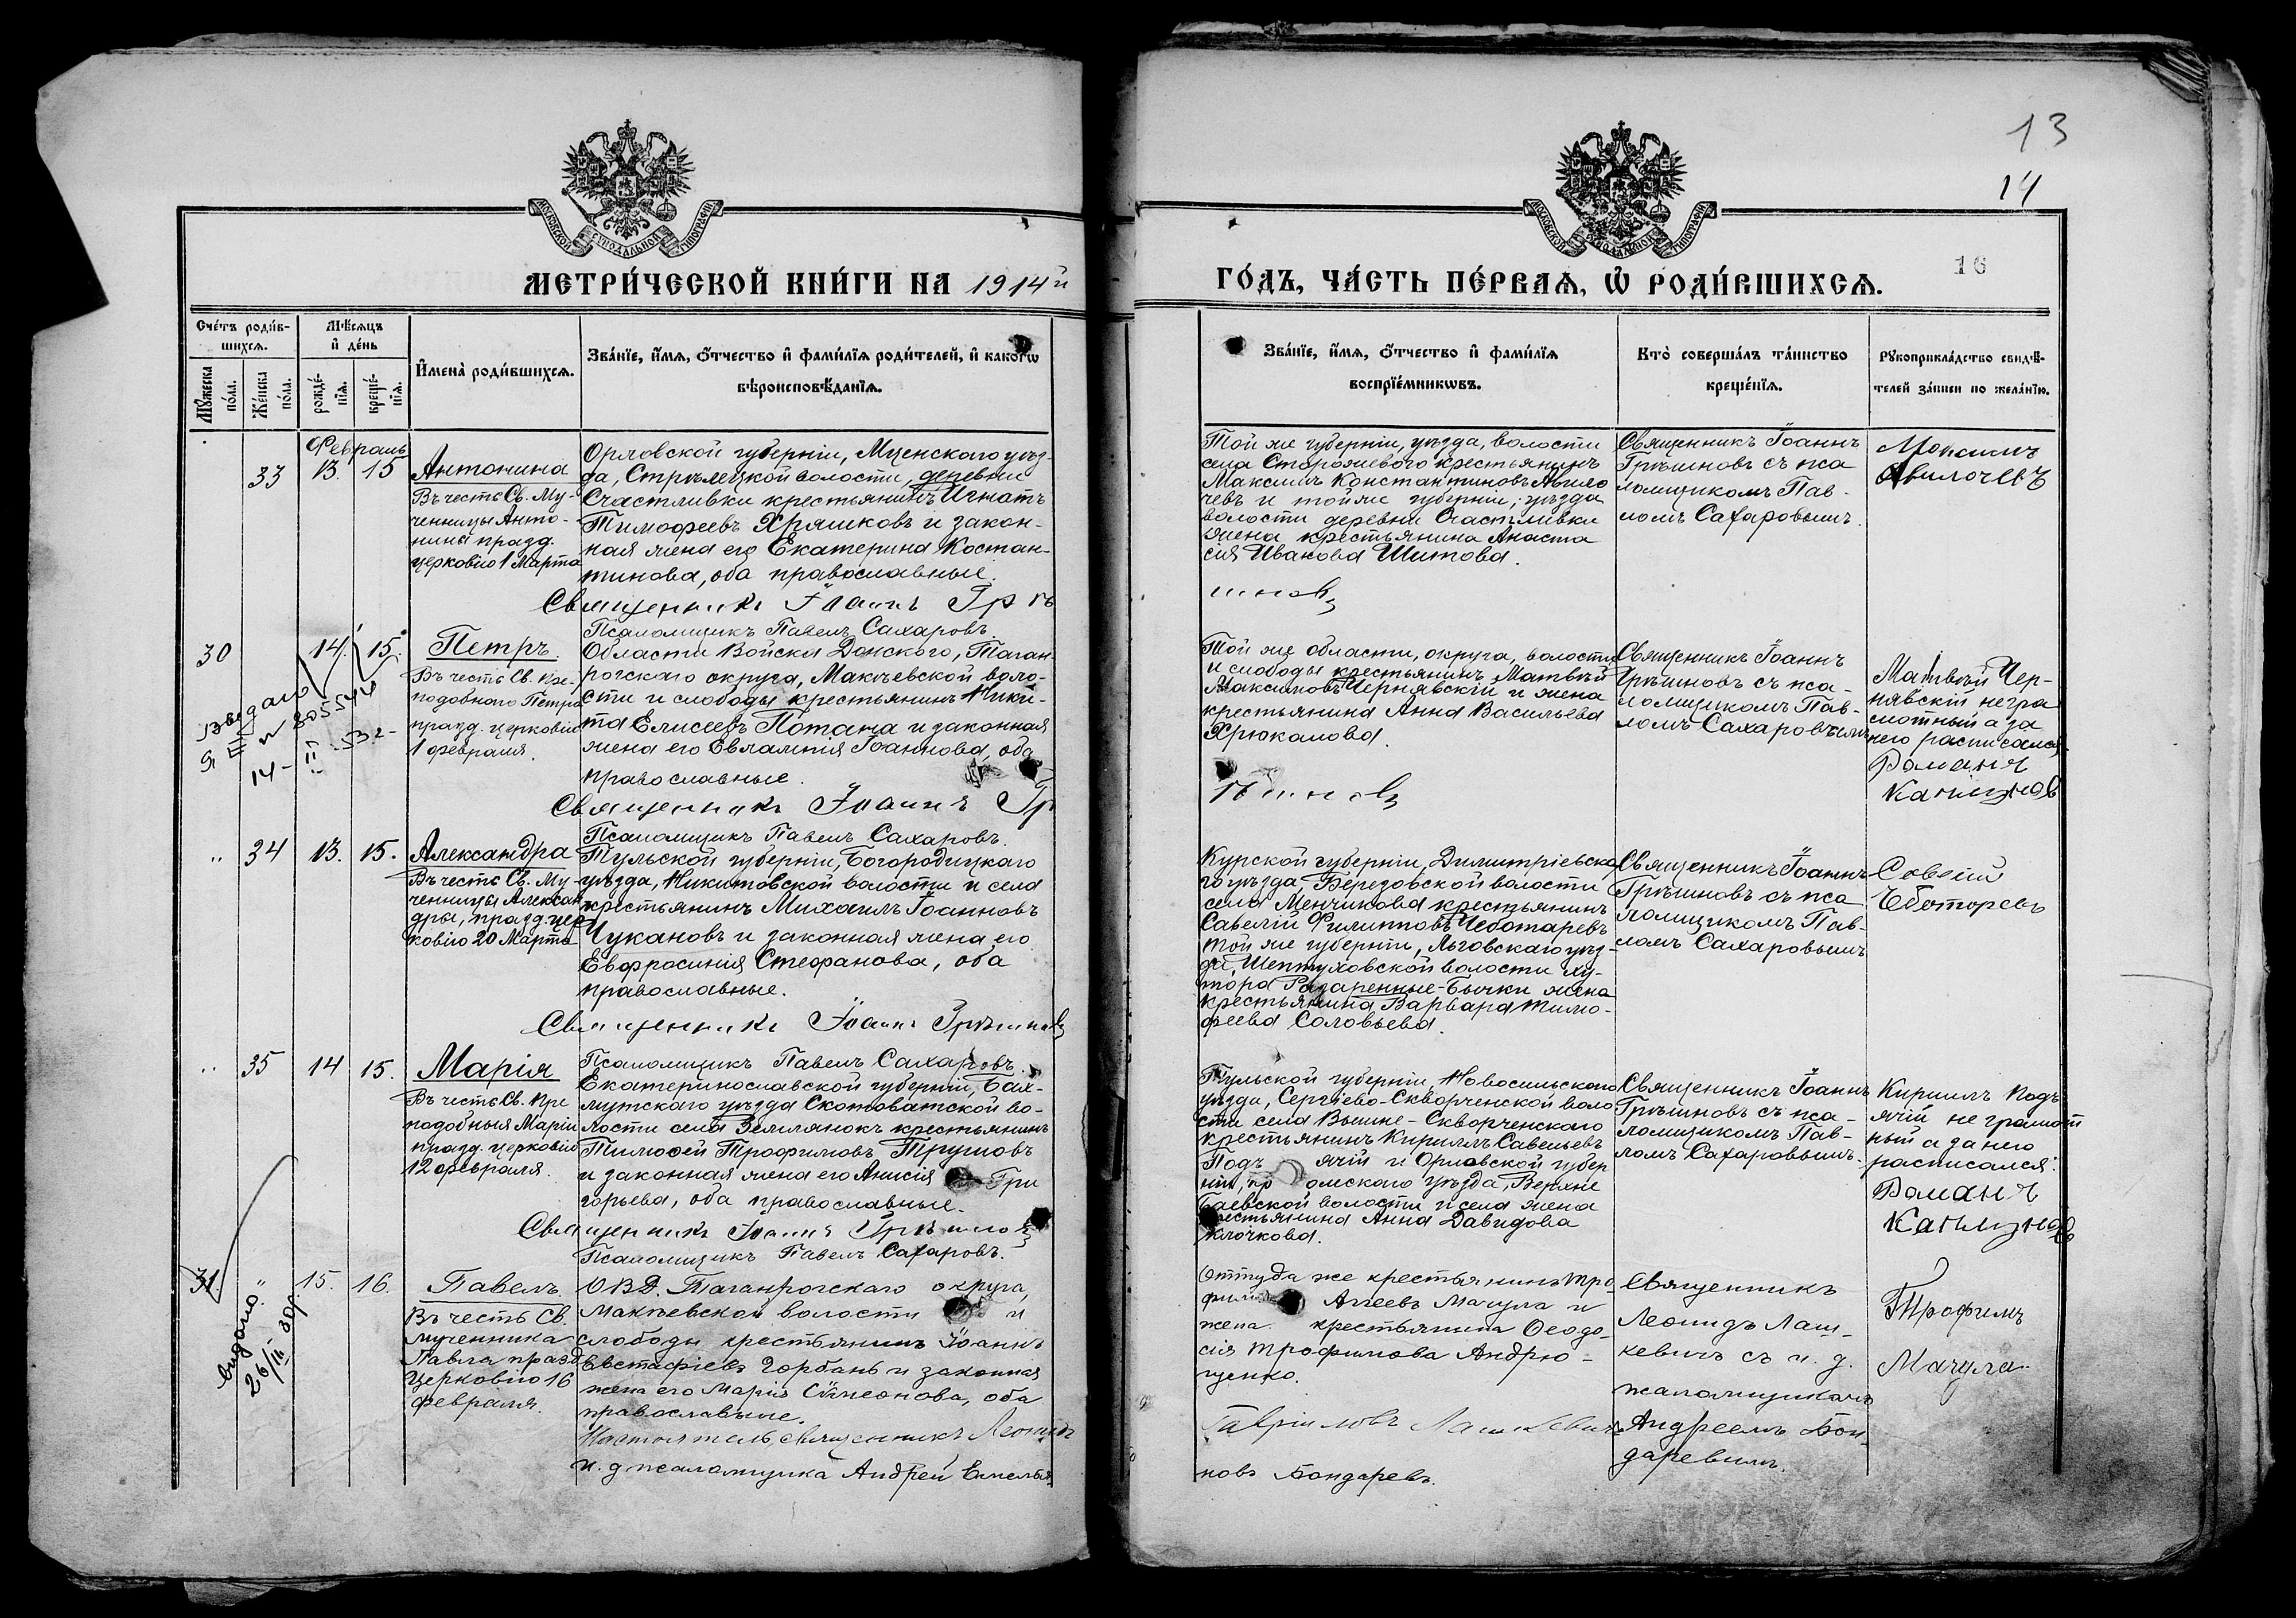 13
14
16
МОСКОВСКОЙ СѴНОДАЛЬНОЙ ТИПОГРАФІИ
МОСКОВСКОЙ СѴНОДАЛЬНОЙ ТИПОГРАФІИ
МЕТРИ́ЧЕСКОЙ КНИ́ГИ НА 1914й
ГО́ДЪ, ЧА́СТЬ ПЕ́РВАѦ, Ѽ РОДИ́ВШИХСѦ.
Сче́тъ роди́в-
шихсѧ.
Мѣ́сѧцъ
и҆ де́нь
Мꙋ́жеска
по́ла.
Же́нска
по́ла.
рожде́-
нїѧ.
креще́-
нїѧ.
И҆мена̀ роди́вшихсѧ.
Зва́нїе, и҆́мѧ, ѻ҆́тчество и҆ фами́лїѧ роди́телей, и҆ како́гѡ
вѣроисповѣ́данїѧ.
Зва́нїе, и҆́мѧ, ѻ҆́тчество и҆ фами́лїѧ
воспрїе́мникѡвъ.
Кто̀ соверша́лъ та́инство
креще́нїѧ.
Рꙋкоприкла́дство свидѣ́-
телей за́писи по жела́нїю.
Февраль
33
13.
15
Антонина
Въ честь Св. Му-
ченницы Анто-
нины празд.
церковію 1 Марта
Орловской губерніи, Мценскаго уѣз-
да, Стрѣлецкой волости, деревни
Счастливки крестьянинъ Игнатъ
Тимофеевъ Хряшковъ и закон-
ная жена его Екатерина Костан-
тинова, оба православные.
Священникъ Іоаннъ Грѣ
Псаломщикъ Павелъ Сахаровъ.
Той же губерніи, уѣзда, волости
села Сторожевого крестьянинъ
Максимъ Константиновъ Авило
чевъ и той же губерніи, уѣзда
волости деревни Счастливки
жена крестьянина Анаста
сія Иванова Шитова.
шновъ
Священникъ Іоаннъ
Грѣшновъ съ пса
ломщикомъ Пав-
ломъ Сахаровымъ.
Максимъ
Авилочевъ
30
14.
15.
Петръ.
Въ честь Св. Пре-
подобнаго Петра
празд. церковію
1 февраля.
Области Войска Донского, Таган-
рогскаго округа, Макѣевской воло-
сти и слободы крестьянинъ Ники-
та Елисеевъ Потапа и законная
жена его Евлампія Іоаннова, оба
православные.
Священникъ Іоаннъ Гр
Псаломщикъ Павелъ Сахаровъ.
Той же области, округа, волости
и слободы крестьянинъ Матвѣй
Максимовъ Чернявскій и жена
крестьянина Анна Васильева
Хрюкалова.
ѣшновъ
Священникъ Іоаннъ
Грѣшновъ съ пса-
ломщикомъ Пав-
ломъ Сахаровымъ
Матвѣй Чер-
нявскій негра
мотный а за
него расписался
Романъ
Каплуновъ
Выдано
14-II-53 г-
" 34
13.
15.
Александра
Въ честь Св. Му-
ченницы Алексан
дры, празд. цер-
ковію 20 Марта
Тульской губерніи, Богородицкаго
уѣзда, Никитовской волости и села
крестьянинъ Михаилъ Іоанновъ
Чукановъ и законная жена его
Евфросинія Стефанова, оба
православные.
Священникъ Іоаннъ Грѣшновъ
Псаломщикъ Павелъ Сахаровъ.
Курской губерніи, Димитріевска
го уѣзда, Березовской волости
села Менчикова крестьянинъ
Савелій Филипповъ Чеботаревъ
той же губерніи, Льговскаго уѣз-
да, Шептуховской волости ху-
тора Разаренные-Бычки жена
крестьянина Варвара Тимо-
феева Соловьева.
Священникъ Іоаннъ
Грѣшновъ съ пса
ломщикомъ Пав-
ломъ Сахаровымъ
Савелій
Чботоревъ
" 35
14
15.
Марія
Въ честь Св. Пре
подобныя Маріи
празд. церковію
12 февраля.
Екатеринославской губерніи, Бах-
мутскаго уѣзда Скотоватской во-
лости села Землянокъ крестьянинъ
Тимофей Трофимовъ Трушовъ
и законная жена его Анисія Гри
горьева, оба православные.
Священникъ Іоаннъ Грѣшновъ
Псаломщикъ Павелъ Сахаровъ.
Тульской губерніи, Новосильскаго
уѣзда, Сергіево-Скворченской воло
сти села Вышне-Скворченскаго
крестьянинъ Кириллъ Савельевъ
Подъ ячій и Орловской губер
ніи, кр омскаго уѣзда, Верхне
баевской волости и села жена
крестьянина Анна Давидова
Клочкова.
Священникъ Іоаннъ
Грѣшновъ съ пса-
ломщикомъ Пав-
ломъ Сахаровымъ.
Кириллъ Подъ
ячій не грамот
ный а за него
расписался:
Романъ
Каплуновъ
31. "
15.
16.
Павелъ.
Въ честь Св.
мученника
Павла празд.
церковію 16
февраля.
О.В.Д. Таганрогскаго округа,
Макѣевской волости и
слободы крестьянинъ Іоаннъ
Евстафіевъ Горбань и законная
жена его Марія Сѵмеонова, оба
православные.
Настоятель, священникъ Леонидъ
и. д. псаломщика Андрей Емелья
Оттуда же крестьянинъ Тро
фимъ Агеевъ Мачула и
жена крестьянина Ѳеодо-
сія Трофимова Андрю-
щенко.
Гавріиловъ Лашкевичъ
новъ Бондаревъ.
Священникъ
Леонидъ Лаш-
кевичъ съ и. д.
псаломщикомъ
Андреемъ Бон-
даревымъ.
Трофимъ
Мачула
видано.
26/III 30р.